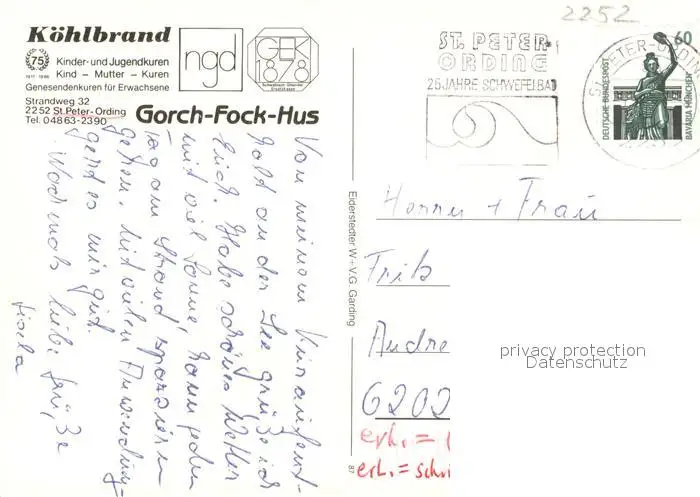 Köhlbrand
75
1911 1986
Kinder- und Jugendkuren
Kind - Mutter - Kuren
Genesendenkuren für Erwachsene
ngd
GEK
1878
Strandweg 32
2252 St. Peter-Ording
Tel. 04863-2390
Gorch-Fock-Hus
2252
ST. PETER-
ORDING
25 JAHRE SCHWEFELBAD
ST. PETER-ORDING
60
DEUTSCHE BUNDESPOST
BAVARIA MÜNCHEN
Von meinem Kuraufent-
halt an der See grüße ich
Euch. Habe schönes Wetter
mit viel Sonne, kann jeden
Tag am Strand spazieren
gehen. Mit vielen Anwendung-
geht es mir gut.
Nochmals liebe Grüße
Gisela
Eiderstedter W + V.G. Garding
87
Herrn + Frau
Fritz
Andre
6202
erh. =
erh. = schri
privacy protection
Datenschutz